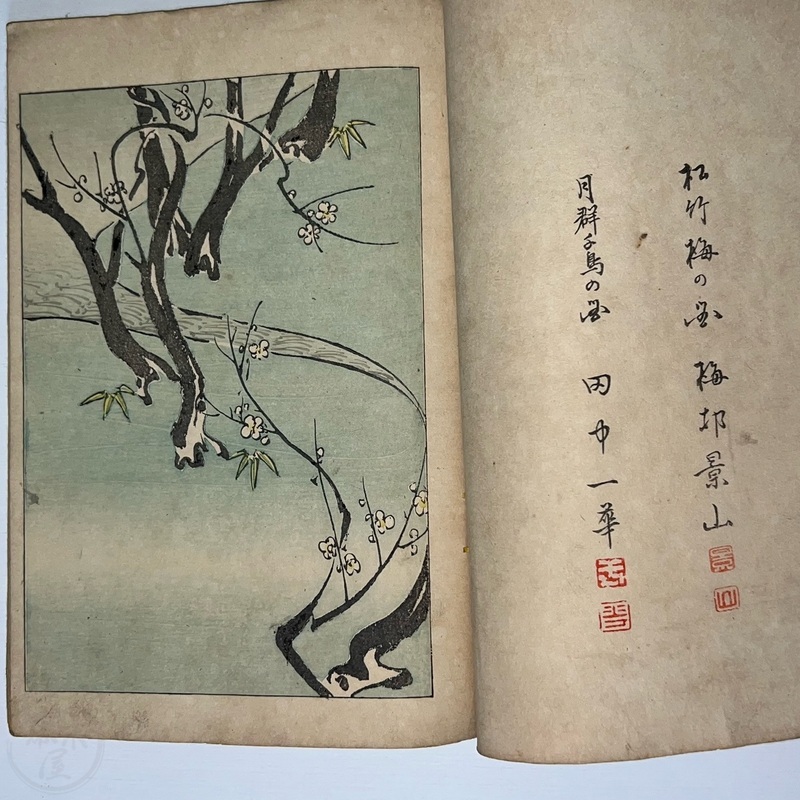 松竹梅の図 梅邨景山
月群千鳥の図 田中一華